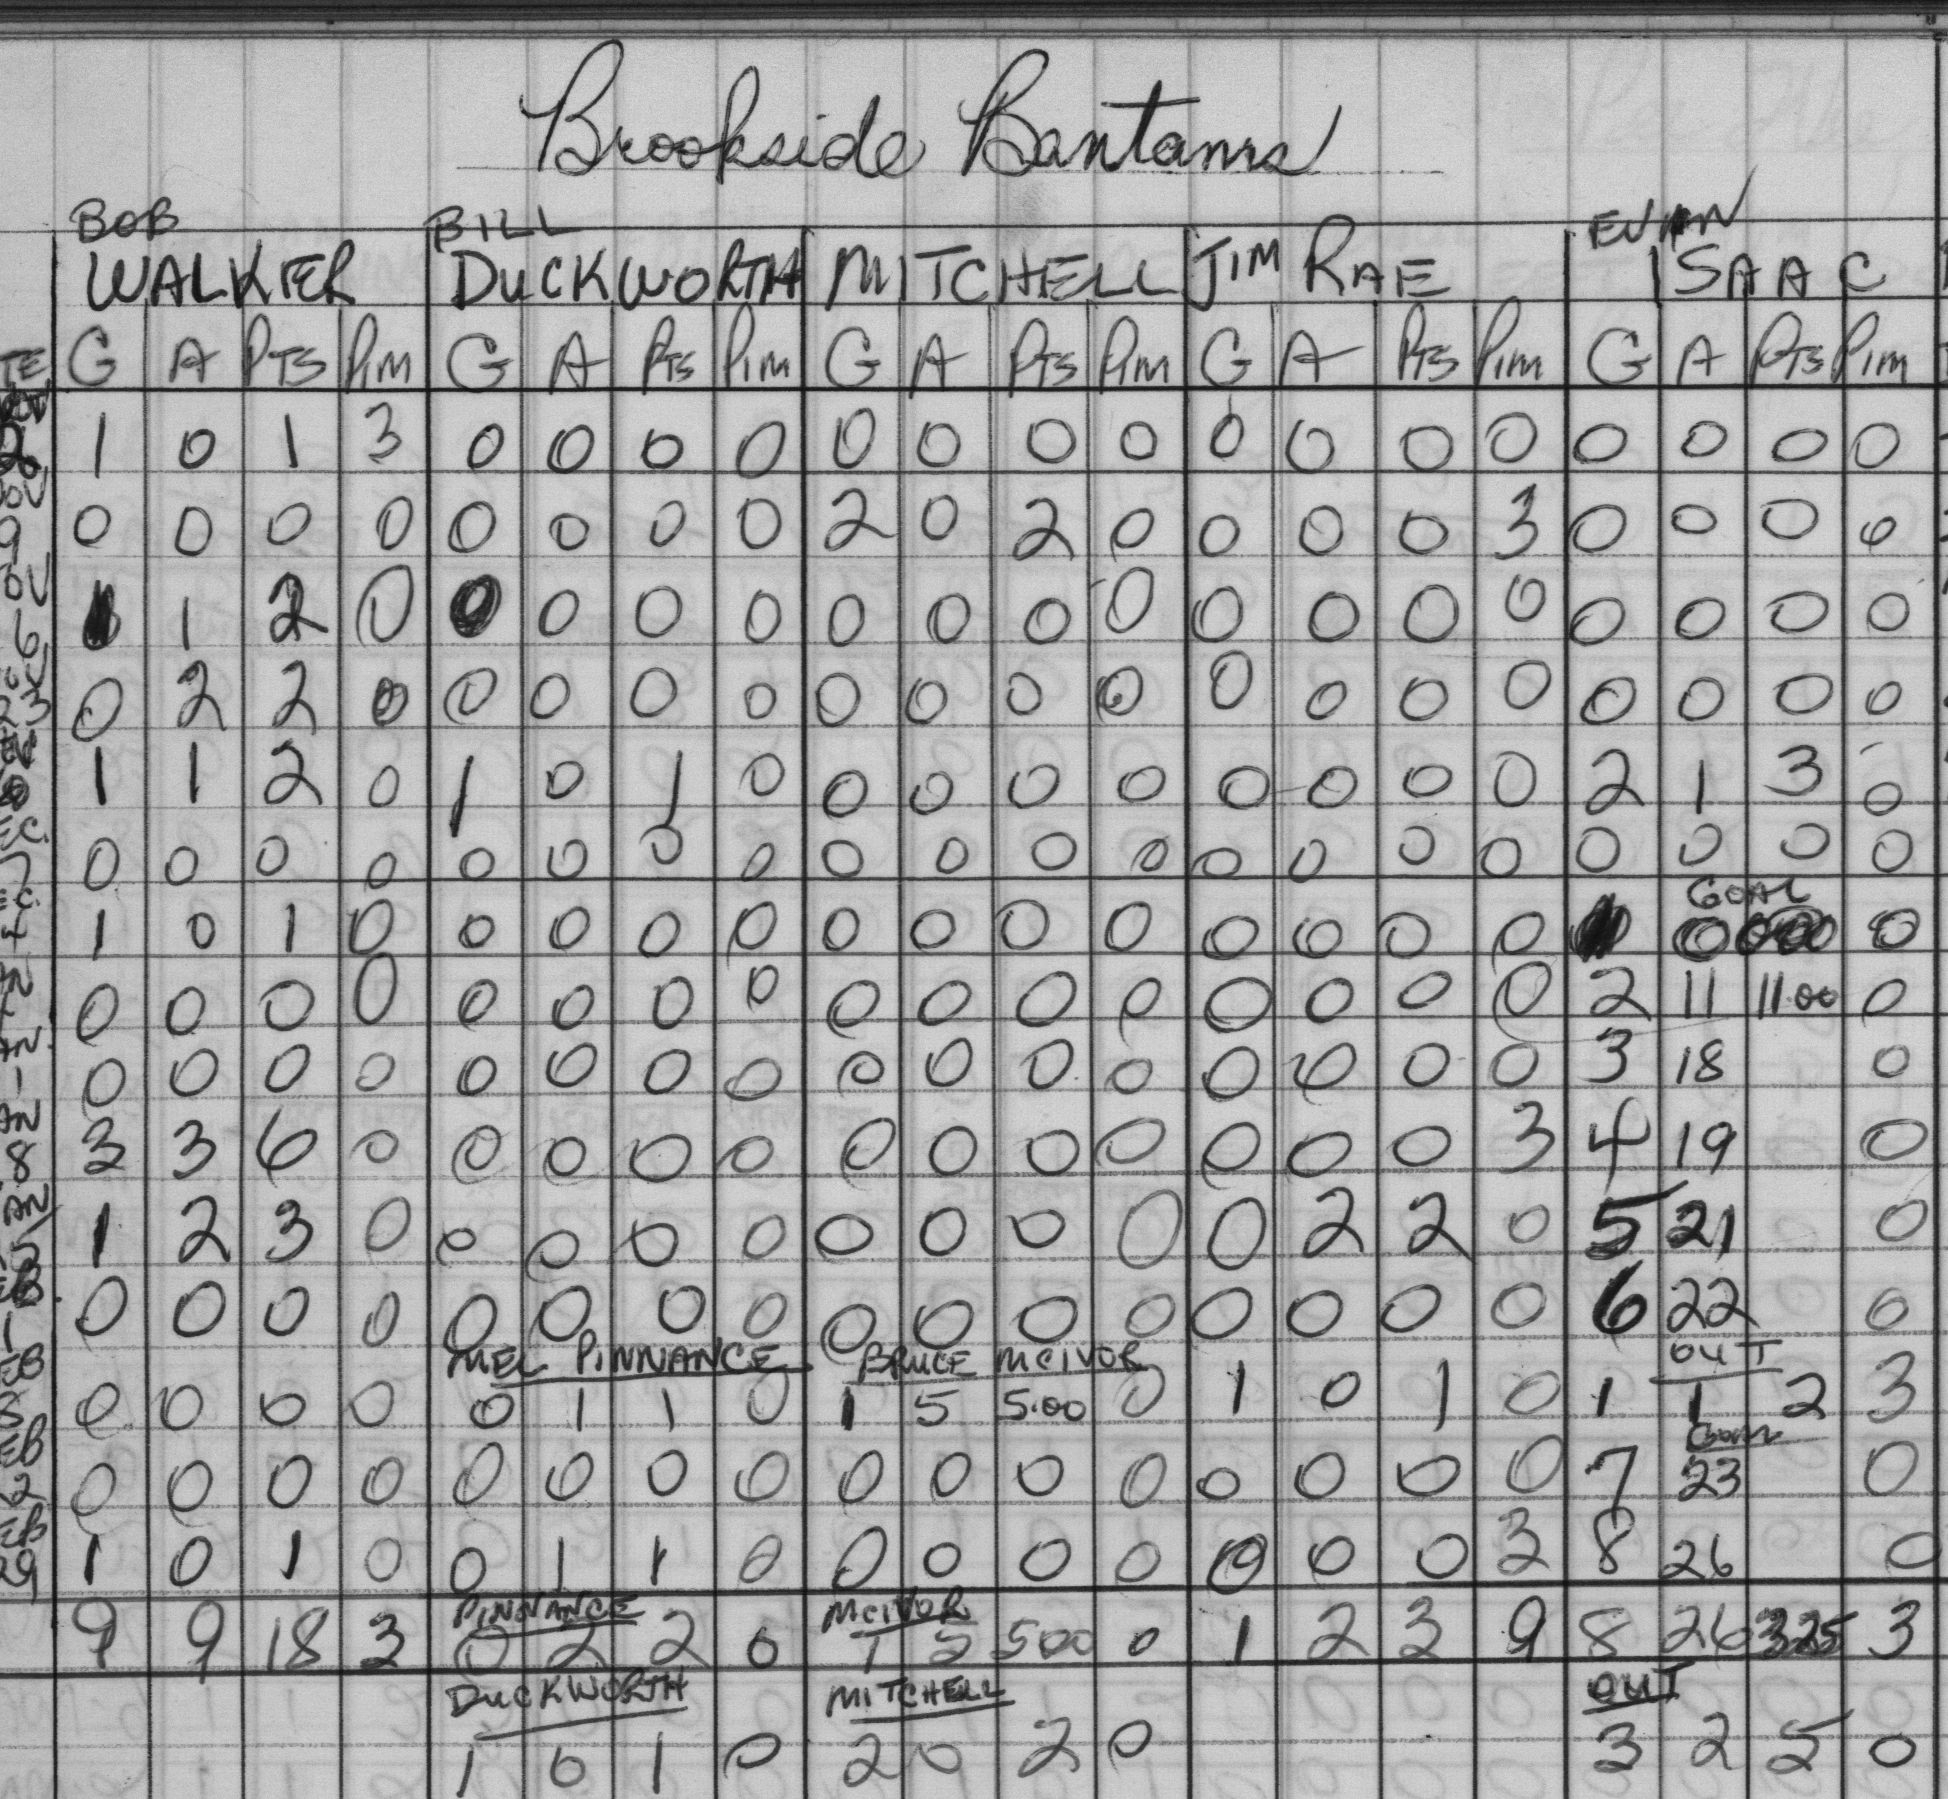 Brookside Bantams
BOB BILL EVAN
WALKER DUCKWORTH MITCHELL JIM RAE ISAAC
TE G A PTS PIM G A PTS PIM G A PTS PIM G A PTS PIM G A PTS PIM
1 0 1 3 0 0 0 0 0 0 0 0 0 0 0 0 0 0 0 0
0 0 0 0 0 0 0 0 2 0 2 0 0 0 0 3 0 0 0 0
1 1 2 0 0 0 0 0 0 0 0 0 0 0 0 0 0 0 0 0
0 2 2 0 0 0 0 0 0 0 0 0 0 0 0 0 0 0 0 0
1 1 2 0 1 0 1 0 0 0 0 0 0 0 0 0 2 1 3 0
0 0 0 0 0 0 0 0 0 0 0 0 0 0 0 0 0 0 0 0
GOAL
1 0 1 0 0 0 0 0 0 0 0 0 0 0 0 0 0 0
0 0 0 0 0 0 0 0 0 0 0 0 0 0 0 0 2 11 11.00 0
0 0 0 0 0 0 0 0 0 0 0 0 0 0 0 0 3 18 0
3 3 6 0 0 0 0 0 0 0 0 0 0 0 0 3 4 19 0
1 2 3 0 0 0 0 0 0 0 0 0 0 2 2 0 5 21 0
0 0 0 0 0 0 0 0 0 0 0 0 0 0 0 0 6 22 0
MEL PINNANCE BRUCE MCIVOR OUT
0 0 0 0 0 1 1 0 1 5 5.00 0 1 0 1 0 1 1 2 3
GOAL
0 0 0 0 0 0 0 0 0 0 0 0 0 0 0 0 7 23 0
1 0 1 0 0 1 1 0 0 0 0 0 0 0 0 3 8 26 0
PINNANCE MCIVOR
9 9 18 3 0 2 2 0 1 5 500 0 1 2 3 9 8 26 325 3
DUCKWORTH MITCHELL OUT
1 0 1 0 2 0 2 0 3 2 5 0